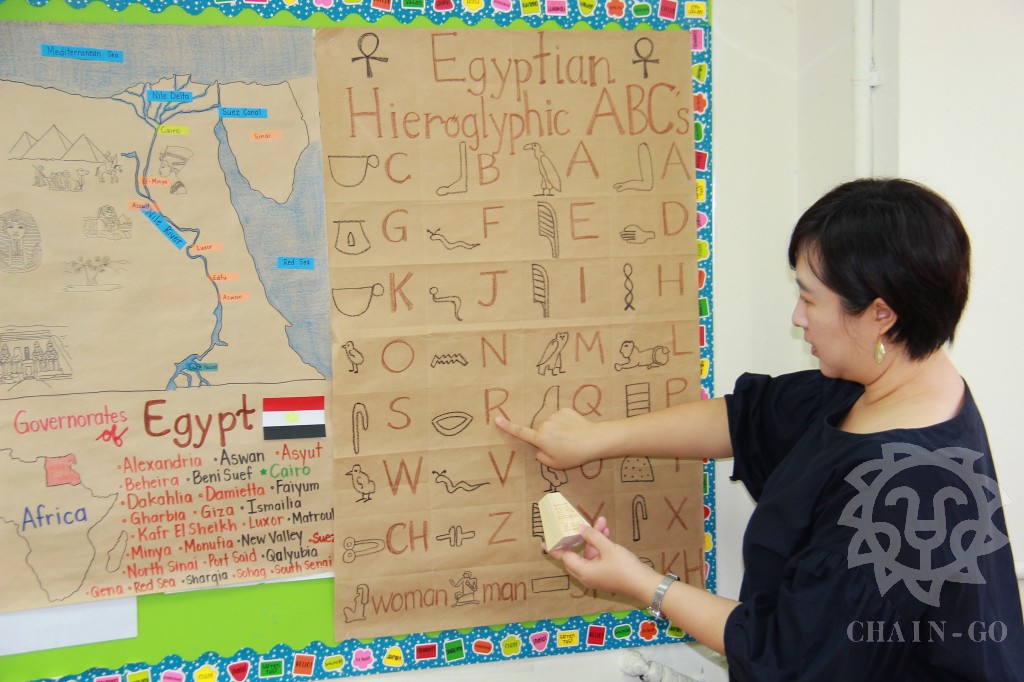 Mediterranean Sea
Nile Delta
Suez Canal
Cairo
Sinai
El-Minya
Asyut
Nile River
Luxor
Red Sea
Edfu
Aswan
Governorates of Egypt
•Alexandria •Aswan •Asyut
•Beheira •Beni Suef ★Cairo
•Dakahlia •Damietta •Faiyum
•Gharbia •Giza •Ismailia
•Kafr El Sheikh •Luxor •Matrouh
•Minya •Monufia •New Valley •Suez
•North Sinai •Port Said •Qalyubia
•Qena •Red Sea •Sharqia •Sohag •South Sinai
Africa
Egyptian
Hieroglyphic ABC's
C B A A
G F E D
K J I H
O N M L
S R Q P
W V U T
CH Z Y X
woman man KH
CHAIN-GO